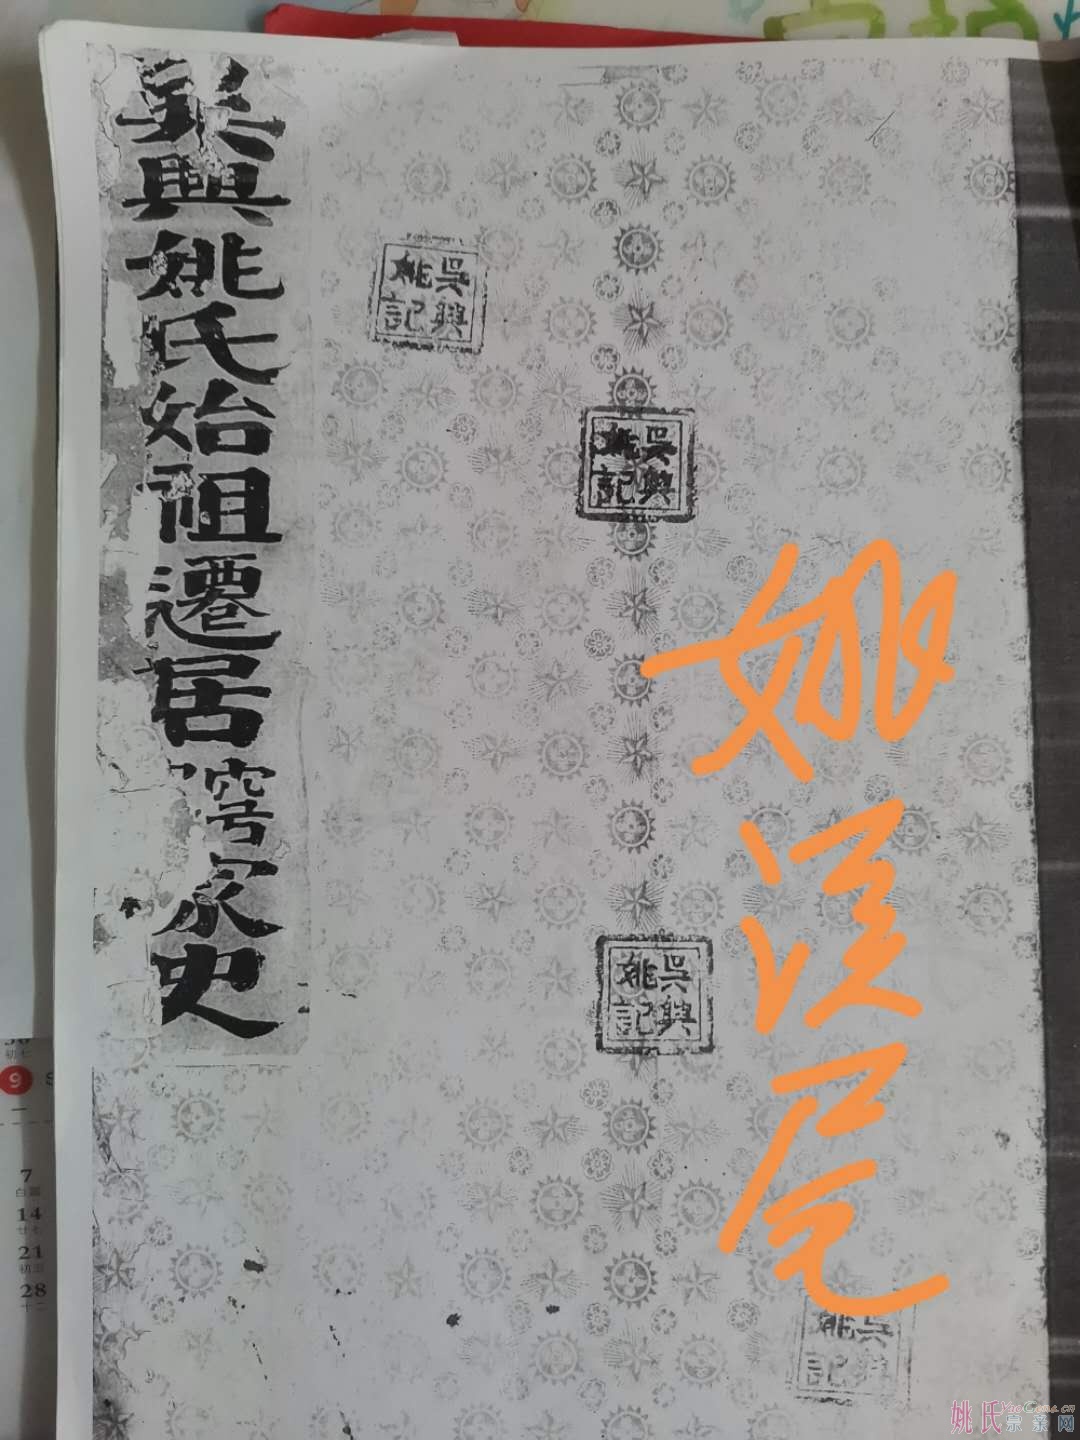 吳興姚氏始祖遷居家史
吳興
姚記
吳興
姚記
吳興
姚記
吳興
姚記
姚
初七
9
一
7
白露
14
廿七
21
28
十二
姚氏宗亲网